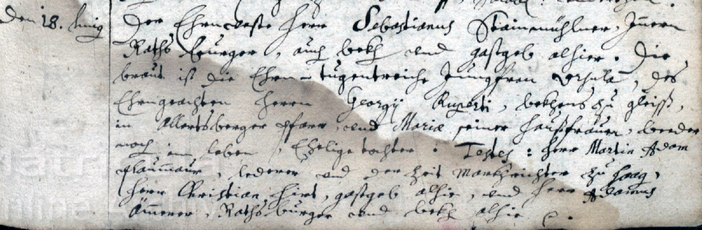 Den 28. Juny
Der Ehrnveste Herr Sebastianus Stainmühlner, Innern
Raths burger, auch bekh und gastgeb alhier. Die
braut ist die Ehrn-tugentreiche Jungfrau Ursula, des
Ehrngeachten Herrn Georgÿ Ruperti, bekhens zu
in Allertsberger Pfarr, und Mariæ seiner haußfrauen, beeder
noch im leben, Eheliche tochter. Testes: Herr Martin Adam
lederer und der Zeit Markhtrichter zu Haag,
Herr Christian Hirt, gastgeb alhie, und Herr Adamus
Raths burger und bekh alhie